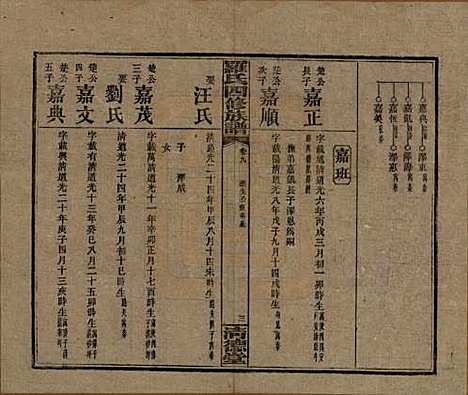 嘉典
嘉凱 澤東
嘉惠 澤憲
嘉美
嘉班
楚公長子
嘉正
字載道清道光六年丙戌三月初一卯時生
撫弟嘉凱長子澤恩為嗣
楚公次子
嘉順
字載陽清道光八年戊子九月十四戌時生
娶
汪氏
清道光二十四年甲辰八月十四未時生
子 澤咸
女
羅氏四修族譜
卷九
三
楚公三子
嘉茂
字載萬清道光十一年辛卯正月十七酉時生
娶
劉氏
清道光二十四年甲辰九月初十巳時生
楚公四子
嘉文
字載 清道光十三年癸巳八月二十五卯時生
楚公五子
嘉典
字載興清道光二十年庚子四月十三亥時生